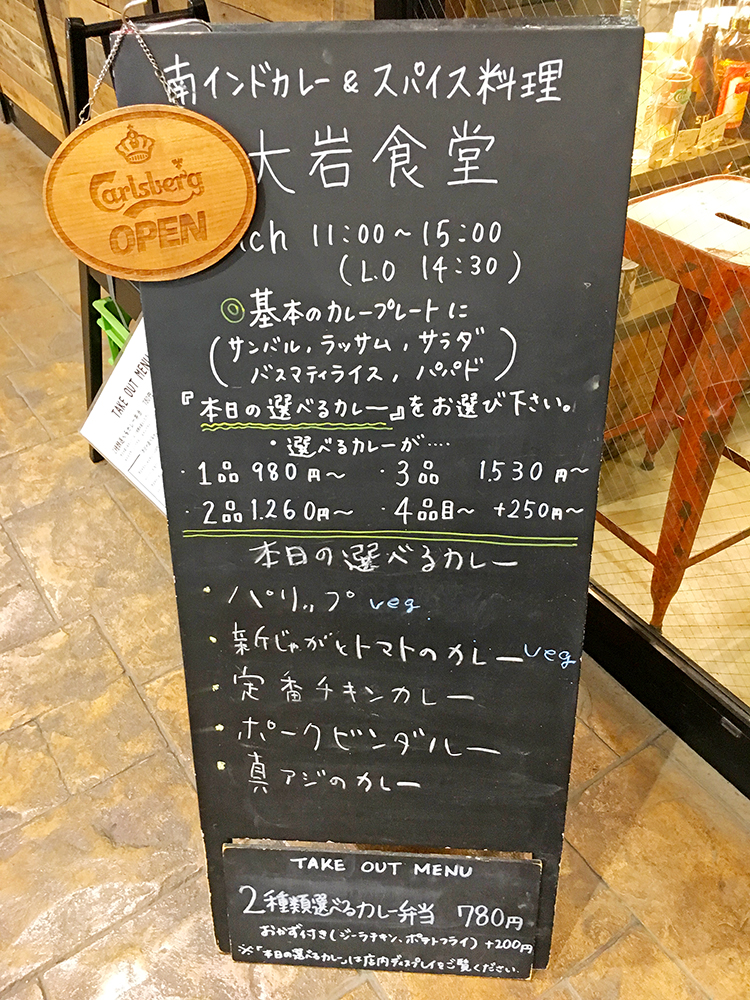 南インドカレー & スパイス料理
大岩食堂
Carlsberg
OPEN
nch 11:00~15:00
(L.O 14:30)
◎基本のカレープレートに
(サンバル, ラッサム, サラダ
バスマティライス, パパド)
『本日の選べるカレー』をお選び下さい。
・選べるカレーが‥‥
・1品 980円~ ・3品 1.530円~
・2品 1.260円~ ・4品目~ +250円~
本日の選べるカレー
・パリップ veg
・新じゃがとトマトのカレー veg
・定番チキンカレー
・ポークビンダルー
・真アジのカレー
TAKE OUT MENU
2種類選べるカレー弁当 780円
おかず付き(ジーラチキン、ポテトフライ) +200円
※「本日の選べるカレー」は店内ディスプレイをご覧ください.
TAKE OUT MENU